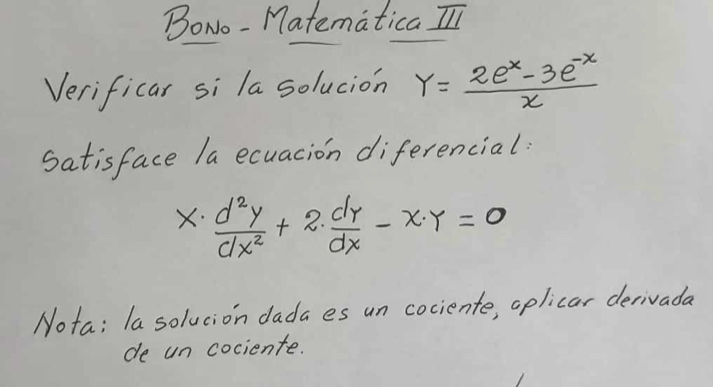 BONO - Matemática III
Verificar si la solución Y = (2eˣ - 3e⁻ˣ)/x
Satisface la ecuación diferencial:
x · d²y/dx² + 2 · dy/dx - x·y = 0
Nota: la solución dada es un cociente, aplicar derivada
de un cociente.